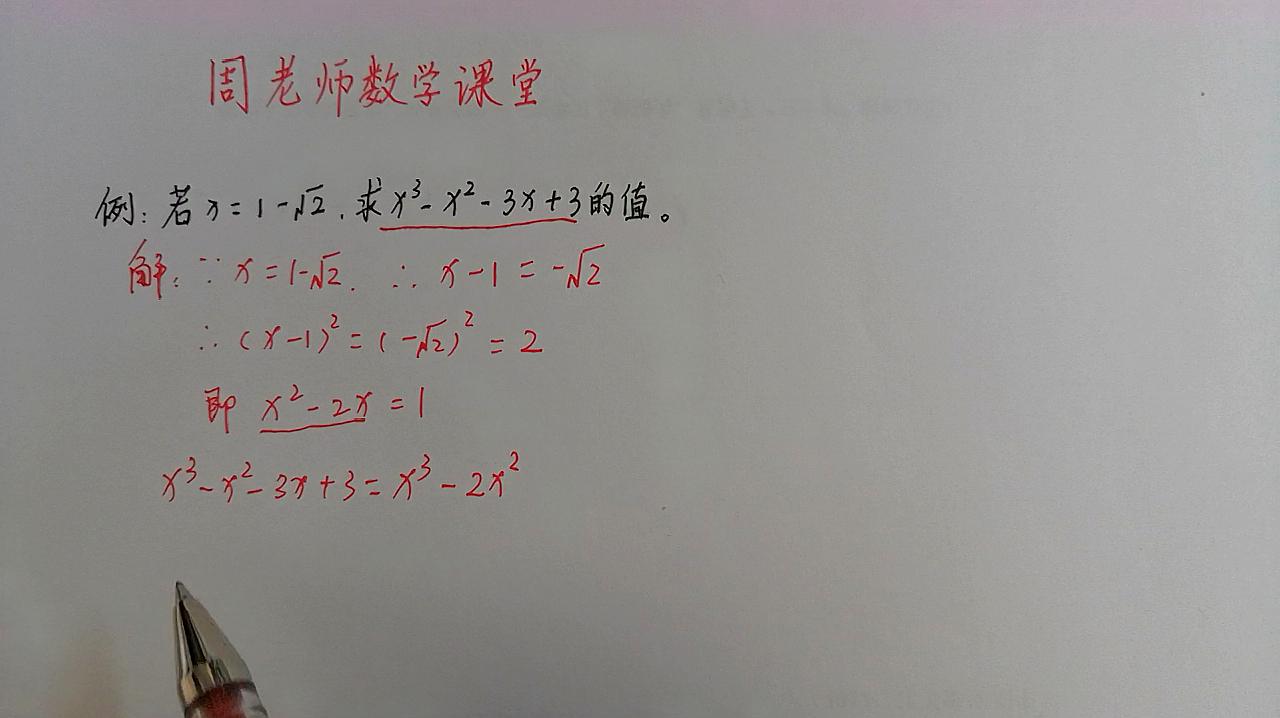 周老师数学课堂
例:若x=1-√2,求x³-x²-3x+3的值。
解:∵x=1-√2. ∴x-1=-√2
∴(x-1)²=(-√2)²=2
即 x²-2x=1
x³-x²-3x+3=x³-2x²